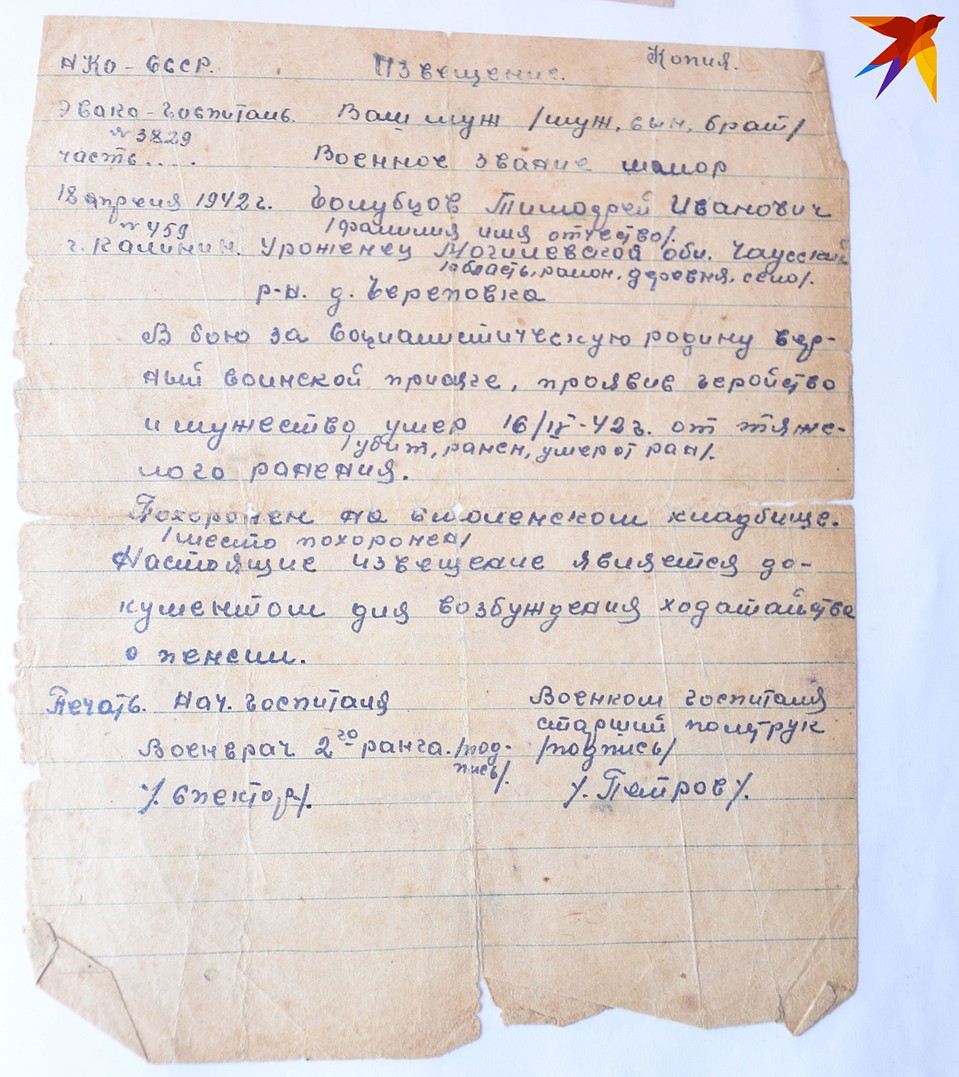 НКО - СССР. Извещение. Копия.
Эвако-Госпиталь. Ваш муж /муж, сын, брат/
№ 3829
часть.... Военное звание майор
18 апреля 1942 г. Голубцов Тимофей Иванович
№ 459 /фамилия имя отчество/.
г. Калинин. Уроженец Могилевской обл. Чаусский
/область, район, деревня, село/.
р-н. д. Череповка
В бою за Социалистическую родину вер-
ный воинской присяге, проявив геройство
и мужество умер 16/IV-42 г. от тяже-
/убит, ранен, умер от ран/.
лого ранения.
Похоронен на Смоленском кладбище.
/место похоронен/
Настоящие извещение является до-
кументом для возбуждения ходатайства
о пенсии.
Печать. Нач. Госпиталя Военком госпиталя
старший политрук
Военврач 2го ранга. /под- /подпись/
пись/.
/. Спектор/. /. Петров/.